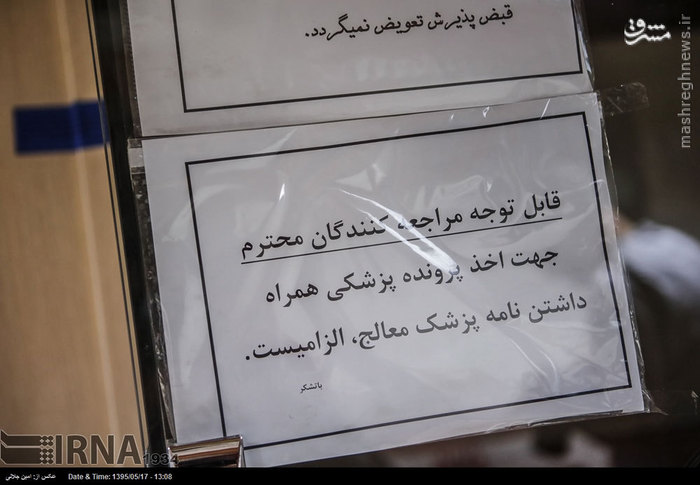 قبض پذیرش تعویض نمیگردد.
مشرق
mashreghnews.ir
قابل توجه مراجعه کنندگان محترم
جهت اخذ پرونده پزشکی همراه
داشتن نامه پزشک معالج، الزامیست.
باتشکر
IRNA
1934
عکس از: امین جلالی Date & Time: 1395/05/17 - 13:08